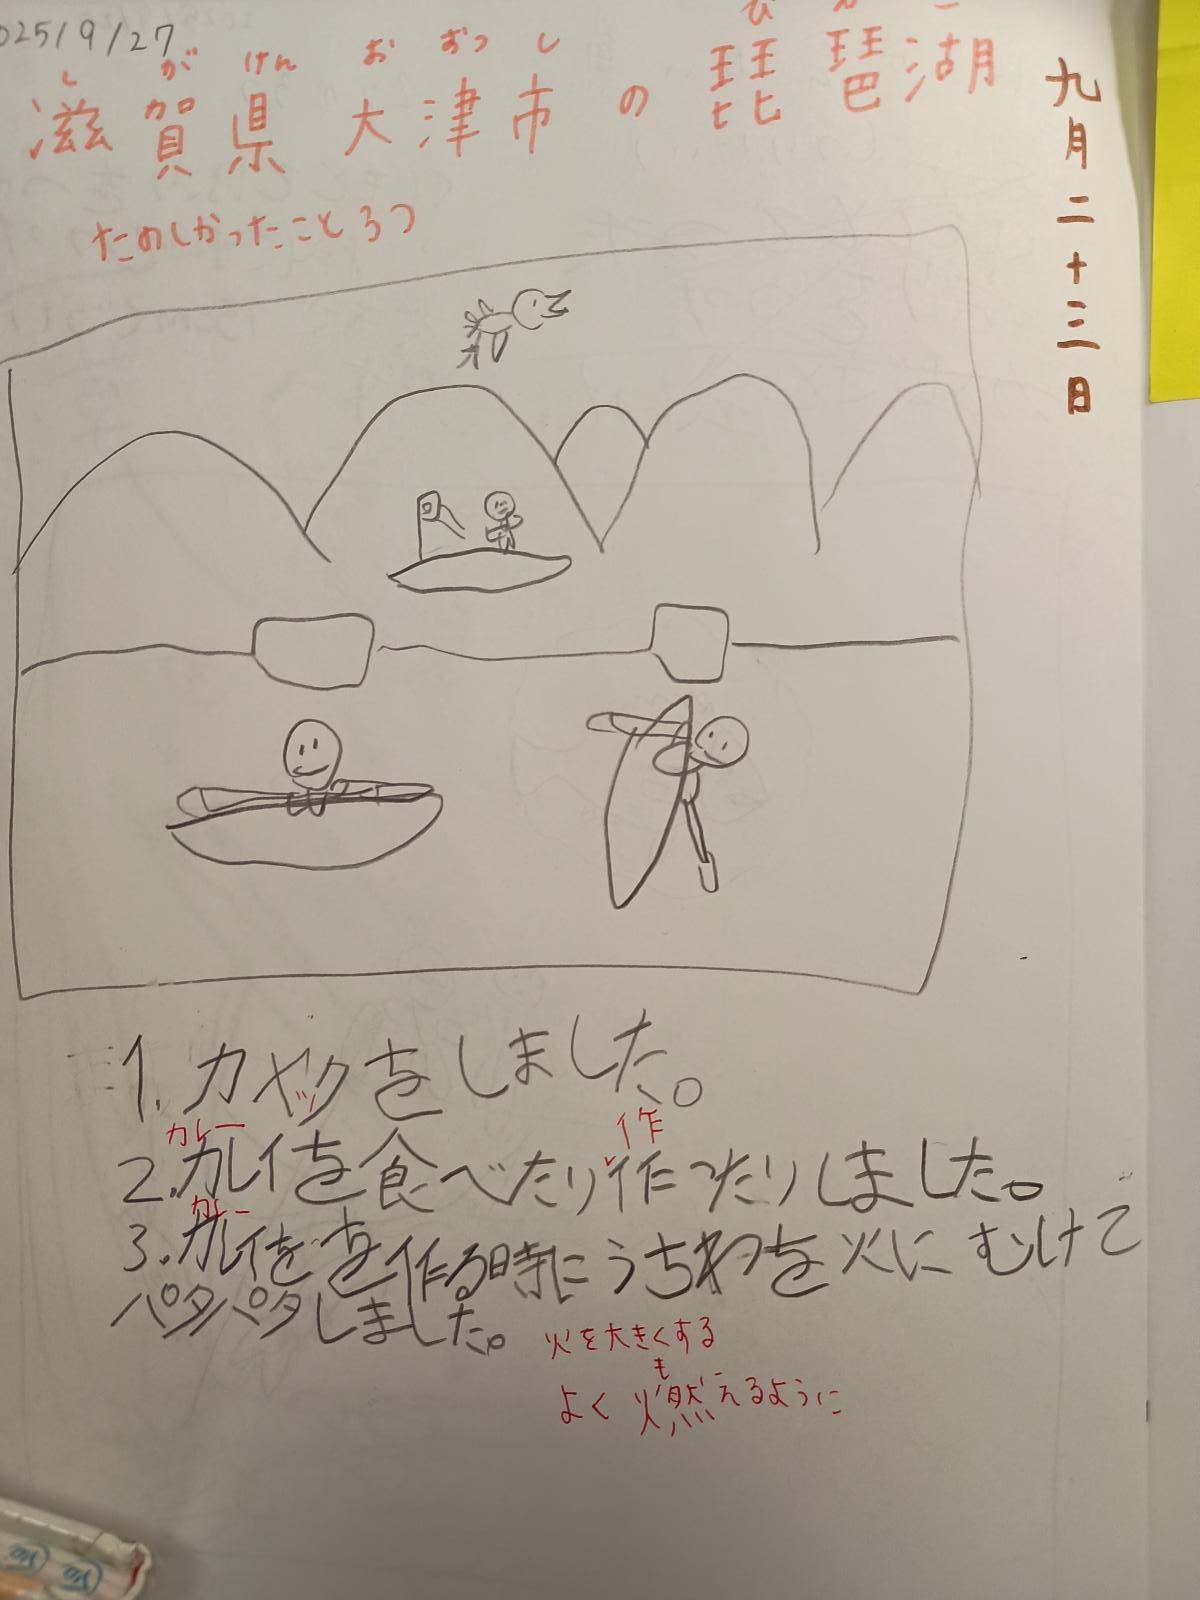 025/9/27
九月二十三日
し が けん お おつ し び わ こ
滋賀県大津市の琵琶湖
ためしかったこと3つ
1.カヤクをしました。
ッ
カレー
作
2.カレイを食べたり作ったりしました。
カレー
3.カレイをを作る時にうちわを火にむけて
パタパタしました。
火を大きくする
も
よく燃えるように